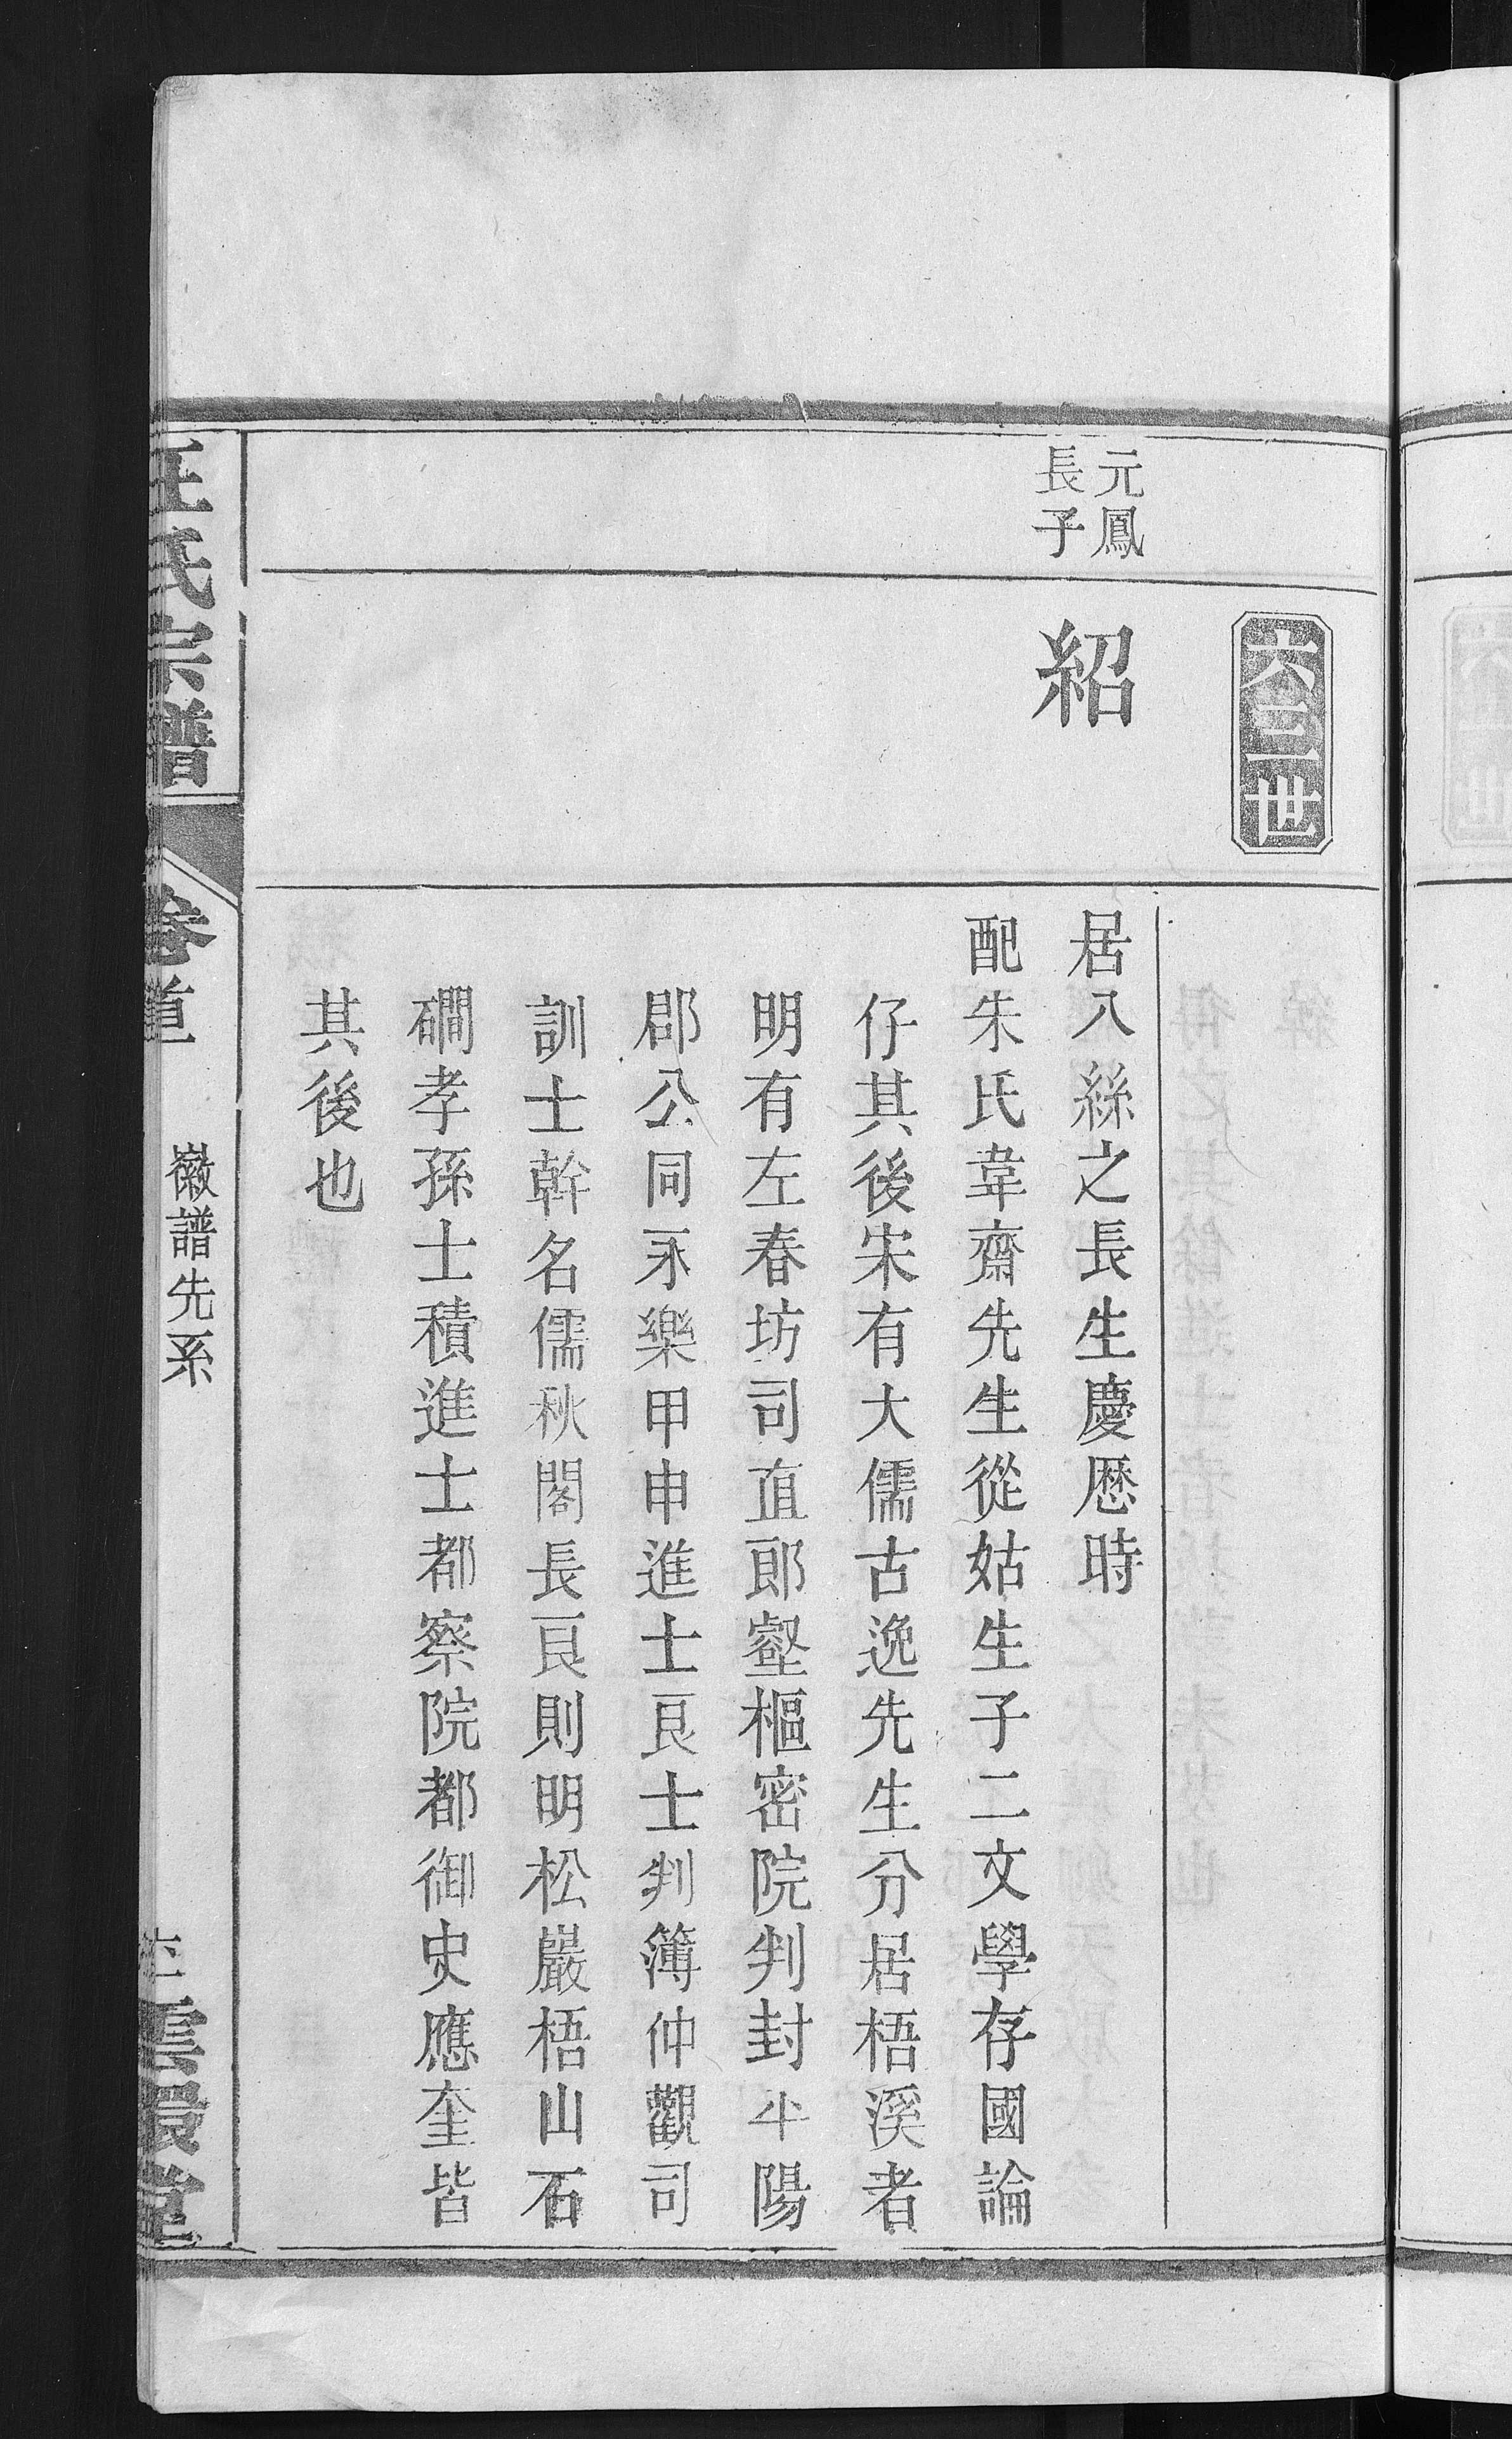 六三世
元鳳
長子
紹
居八絲之長生慶厯時
配朱氏韋齋先生從姑生子二文學存國論
仔其後宋有大儒古逸先生分居梧溪者
明有左春坊司直郎壑樞密院判封平陽
郡公同永樂甲申進士良士判簿仲觀司
訓士幹名儒秋閣長良則明松巖梧山石
磵孝孫士積進士都察院都御史應奎皆
其後也
汪氏宗譜
卷首
徽譜先系
雲環堂